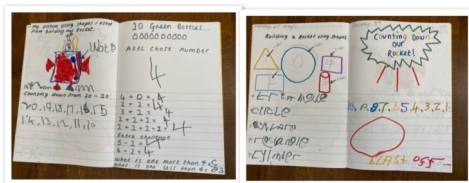 my picture using shapes I used
from building my rocket.
Counting down from 20 - 10
20, 19, 18, 17, 16, 15
14, 13, 12, 11, 10
10 Green Bottles
Axel chose number
4
4 + 0 = 4
2 + 2 = 4
3 + 1 = 4
1 + 1 + 1 + 1 = 4
Extra challenge
5 - 1 = 4
6 - 2 = 4
What is one more than 4 5
What is one less than 4 3
Building a Rocket using Shapes
triangle
circle
square
rectangle
cylinder
Counting Down
our
Rocket!
10, 9, 8, 7, 6, 5, 4, 3, 2, 1
BLAST OFF